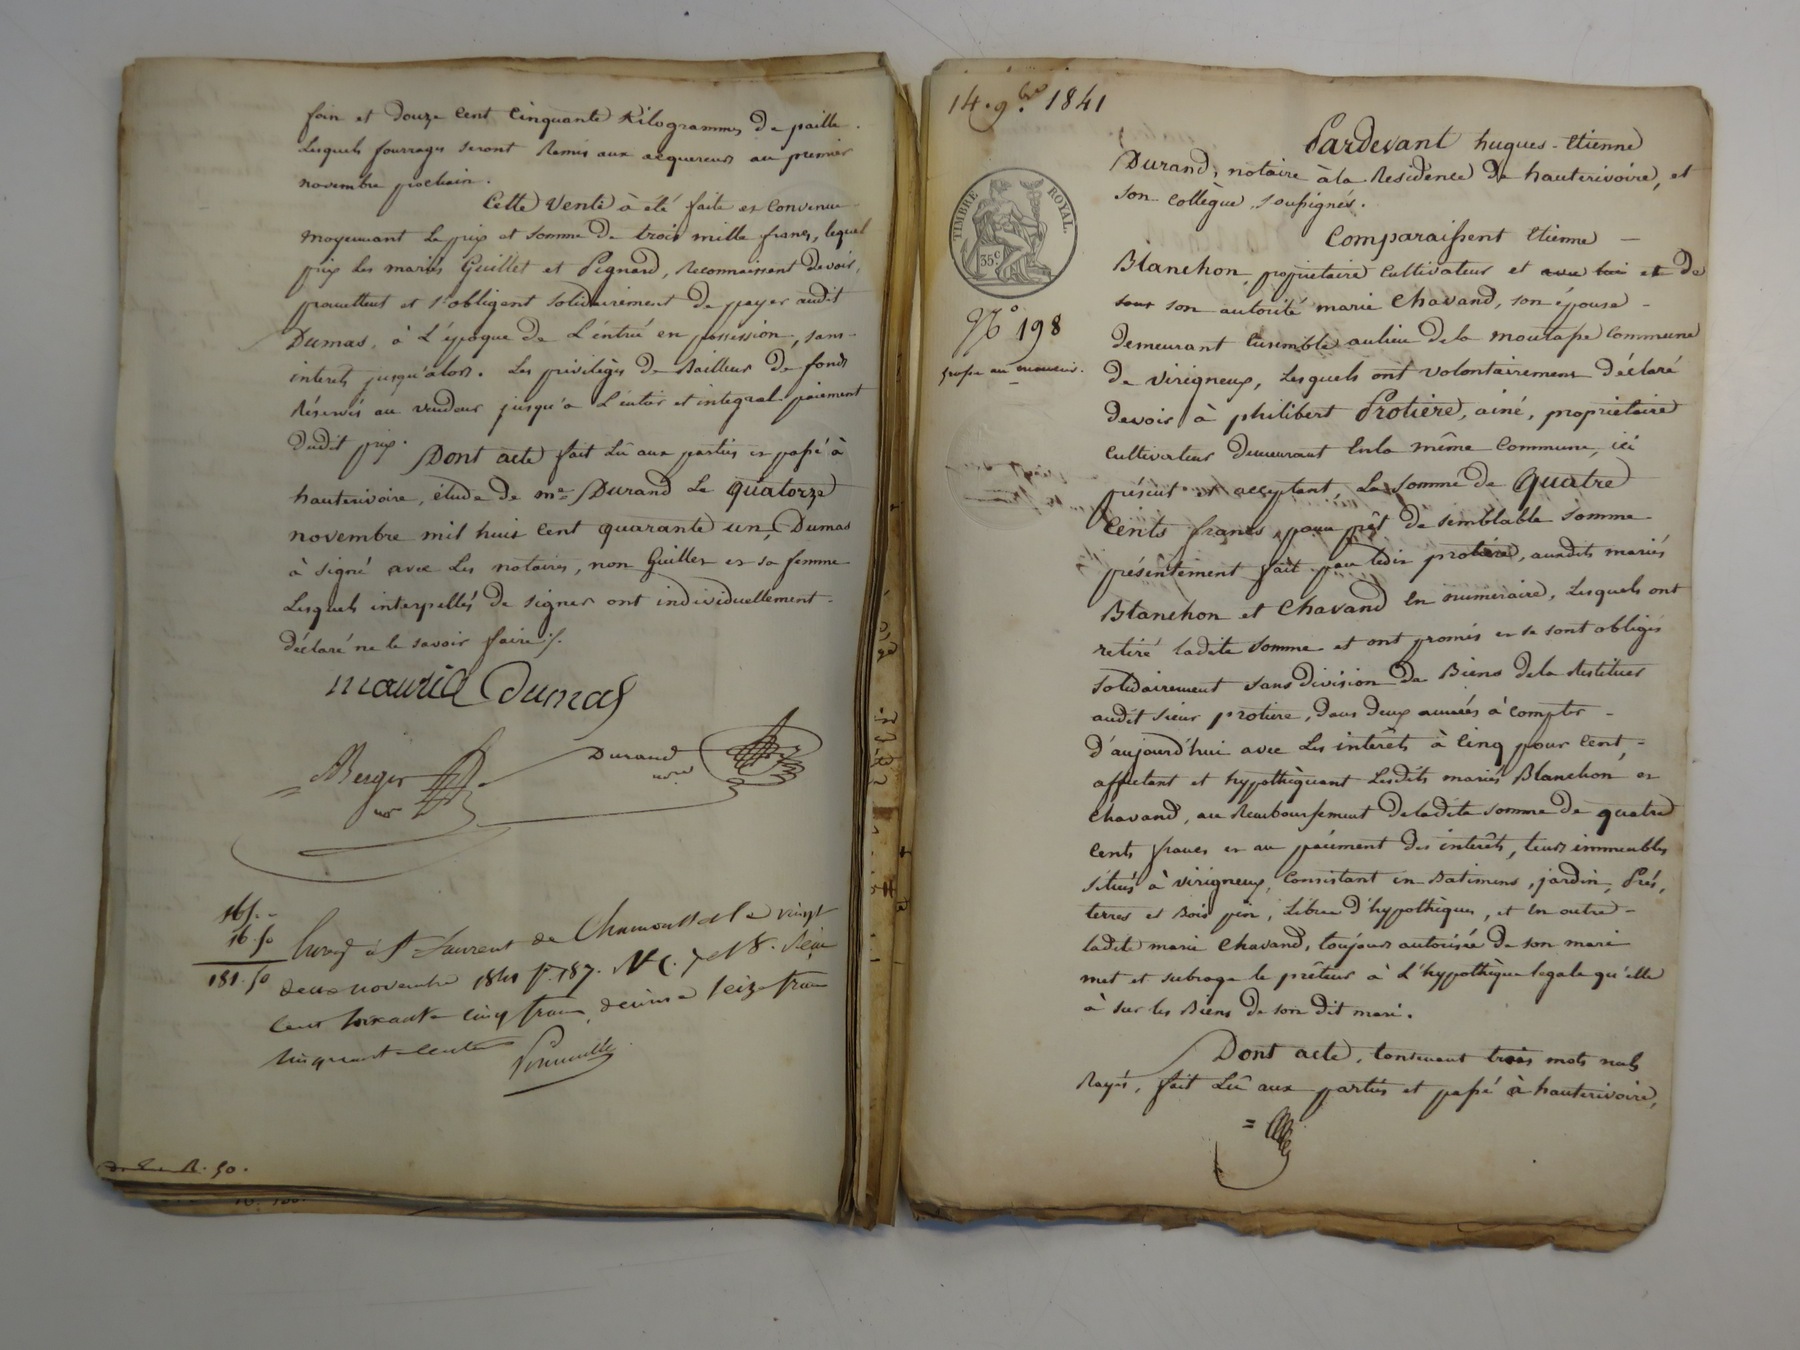 foin et douze cent cinquante Kilogrammes de paille.
Lesquels fourrages seront Remis aux acquereurs au premier
novembre prochain.
Cette Vente à été faite et Convenue
moyennant Le prix et somme de trois mille francs, lequel
prix Les mariés Guillet et Pignard, Reconnaissent devoir,
promettent et s'obligent solidairement de payer audit
Dumas, à L'époque de L'entrée en possession, sans
interets jusqu'alors. Les privilèges de Bailleur de fonds
Réservés au Vendeur jusqu'a L'entier et integral paiement
dudit prix.
Dont acte fait Lû aux parties et passé à
hauterivoire, étude de me Durand Le quatorze
novembre mil huit Cent quarante un, Dumas
à signé avec Les notaires, non Guillet et sa femme
Lesquels interpellés de signer ont individuellement
déclaré ne le savoir faire ./.
maurice Dumas
Berger
nre
Durand
nre
165. -
16. 50
181. 50
Enreg à St Laurent de Chamousset le vingt
deux novembre 1841 f° 187. V° C. 7 et 8. Reçu
cent soixante cinq francs, decime seize francs
cinquante centes
R. 50.
14. 9bre 1841
TIMBRE ROYAL
35c
N° 198
grosse au
Pardevant hugues-Etienne
Durand, notaire à la Residence de hauterivoire, et
son Collègue, soussignés.
Comparaissent Etienne —
Blanchon, propriétaire Cultivateur et avec lui et de
sous son autorité marie Chavand, son épouse -
demeurant Ensemble au lieu de la moutasse Commune
de virigneux, Lesquels ont volontairement déclaré
devoir à philibert Protière, ainé, propriétaire
Cultivateur demeurant En la même Commune, ici
présent et acceptant, La somme de quatre
Cents francs, pour prêt de semblable somme
présentement fait par ledit protière, auxdits mariés
Blanchon et Chavand En numéraire, Lesquels ont
retiré ladite somme et ont promis et se sont obligés
solidairement sans division de Biens de la Restituer
audit sieur protiere, dans deux années à compter -
d'aujourd'hui avec Les intérêts à Cinq pour Cent, -
affectant et hypothèquant Lesdits mariés Blanchon et
Chavand, au Remboursement de ladite somme de quatre
Cents francs et au paiement des intérêts, leurs immeubles
situés à virigneux, Consistant en Batimens, jardin, Prés,
terres et Bois pin, Libres d'hypothèques, et En outre -
ladite marie Chavand, toujours autorisée de son mari
met et subroge le prêteur à L'hypothèque legale qu'elle
à sur les Biens de son dit mari.
Dont acte, Contenant trois mots nuls
Rayés, fait Lû aux parties et passé à hauterivoire,